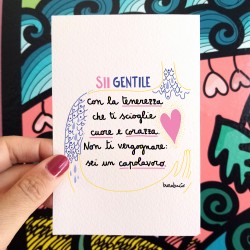 SII GENTILE
con la tenerezza
che ti scioglie
cuore e corazza.
Non ti vergognare:
sei un capolavoro.